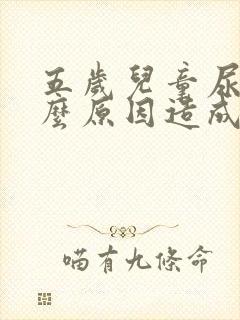 五歲兒童尿
麼原因造成
喵有九條命